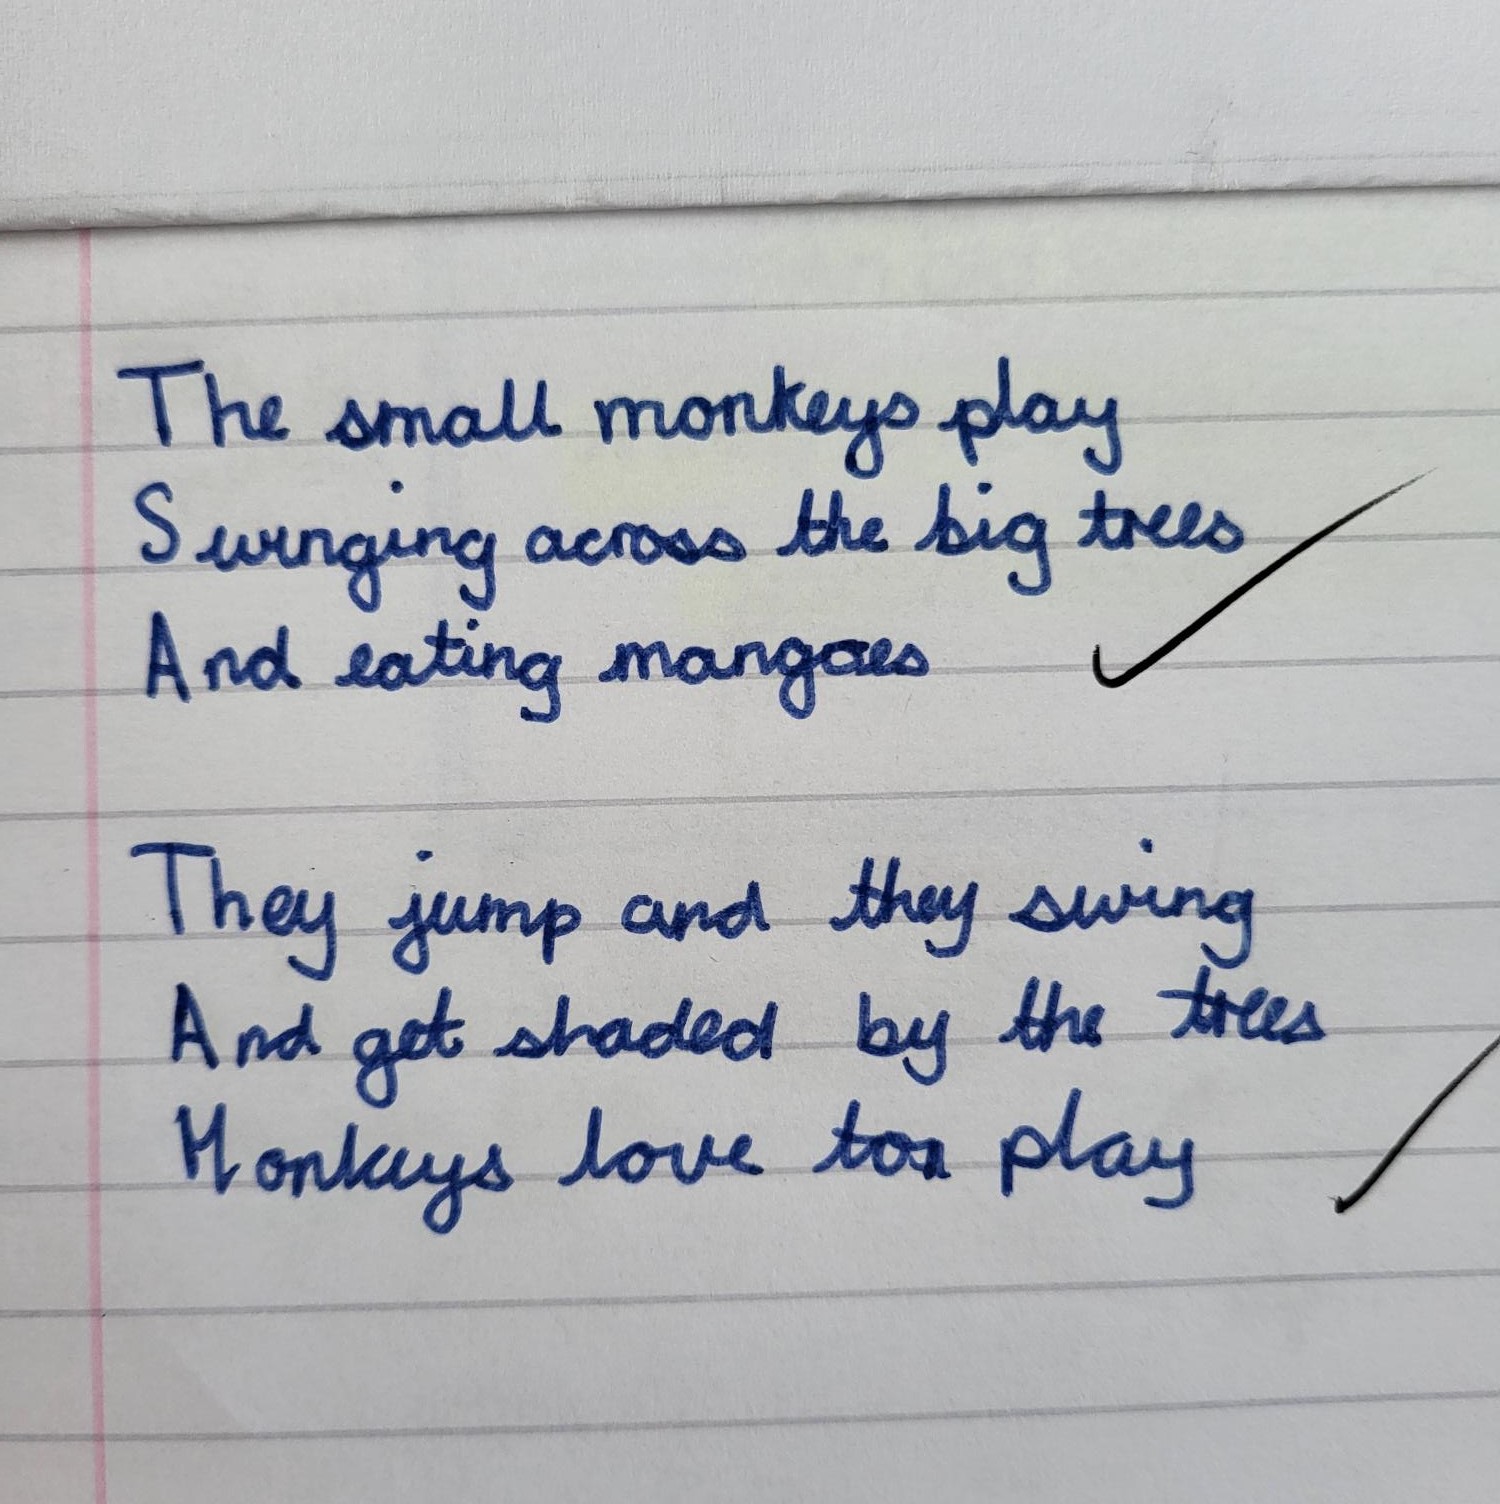 The small monkeys play
Swinging across the big trees
And eating mangoes
They jump and they swing
And get shaded by the trees
Monkeys love to play